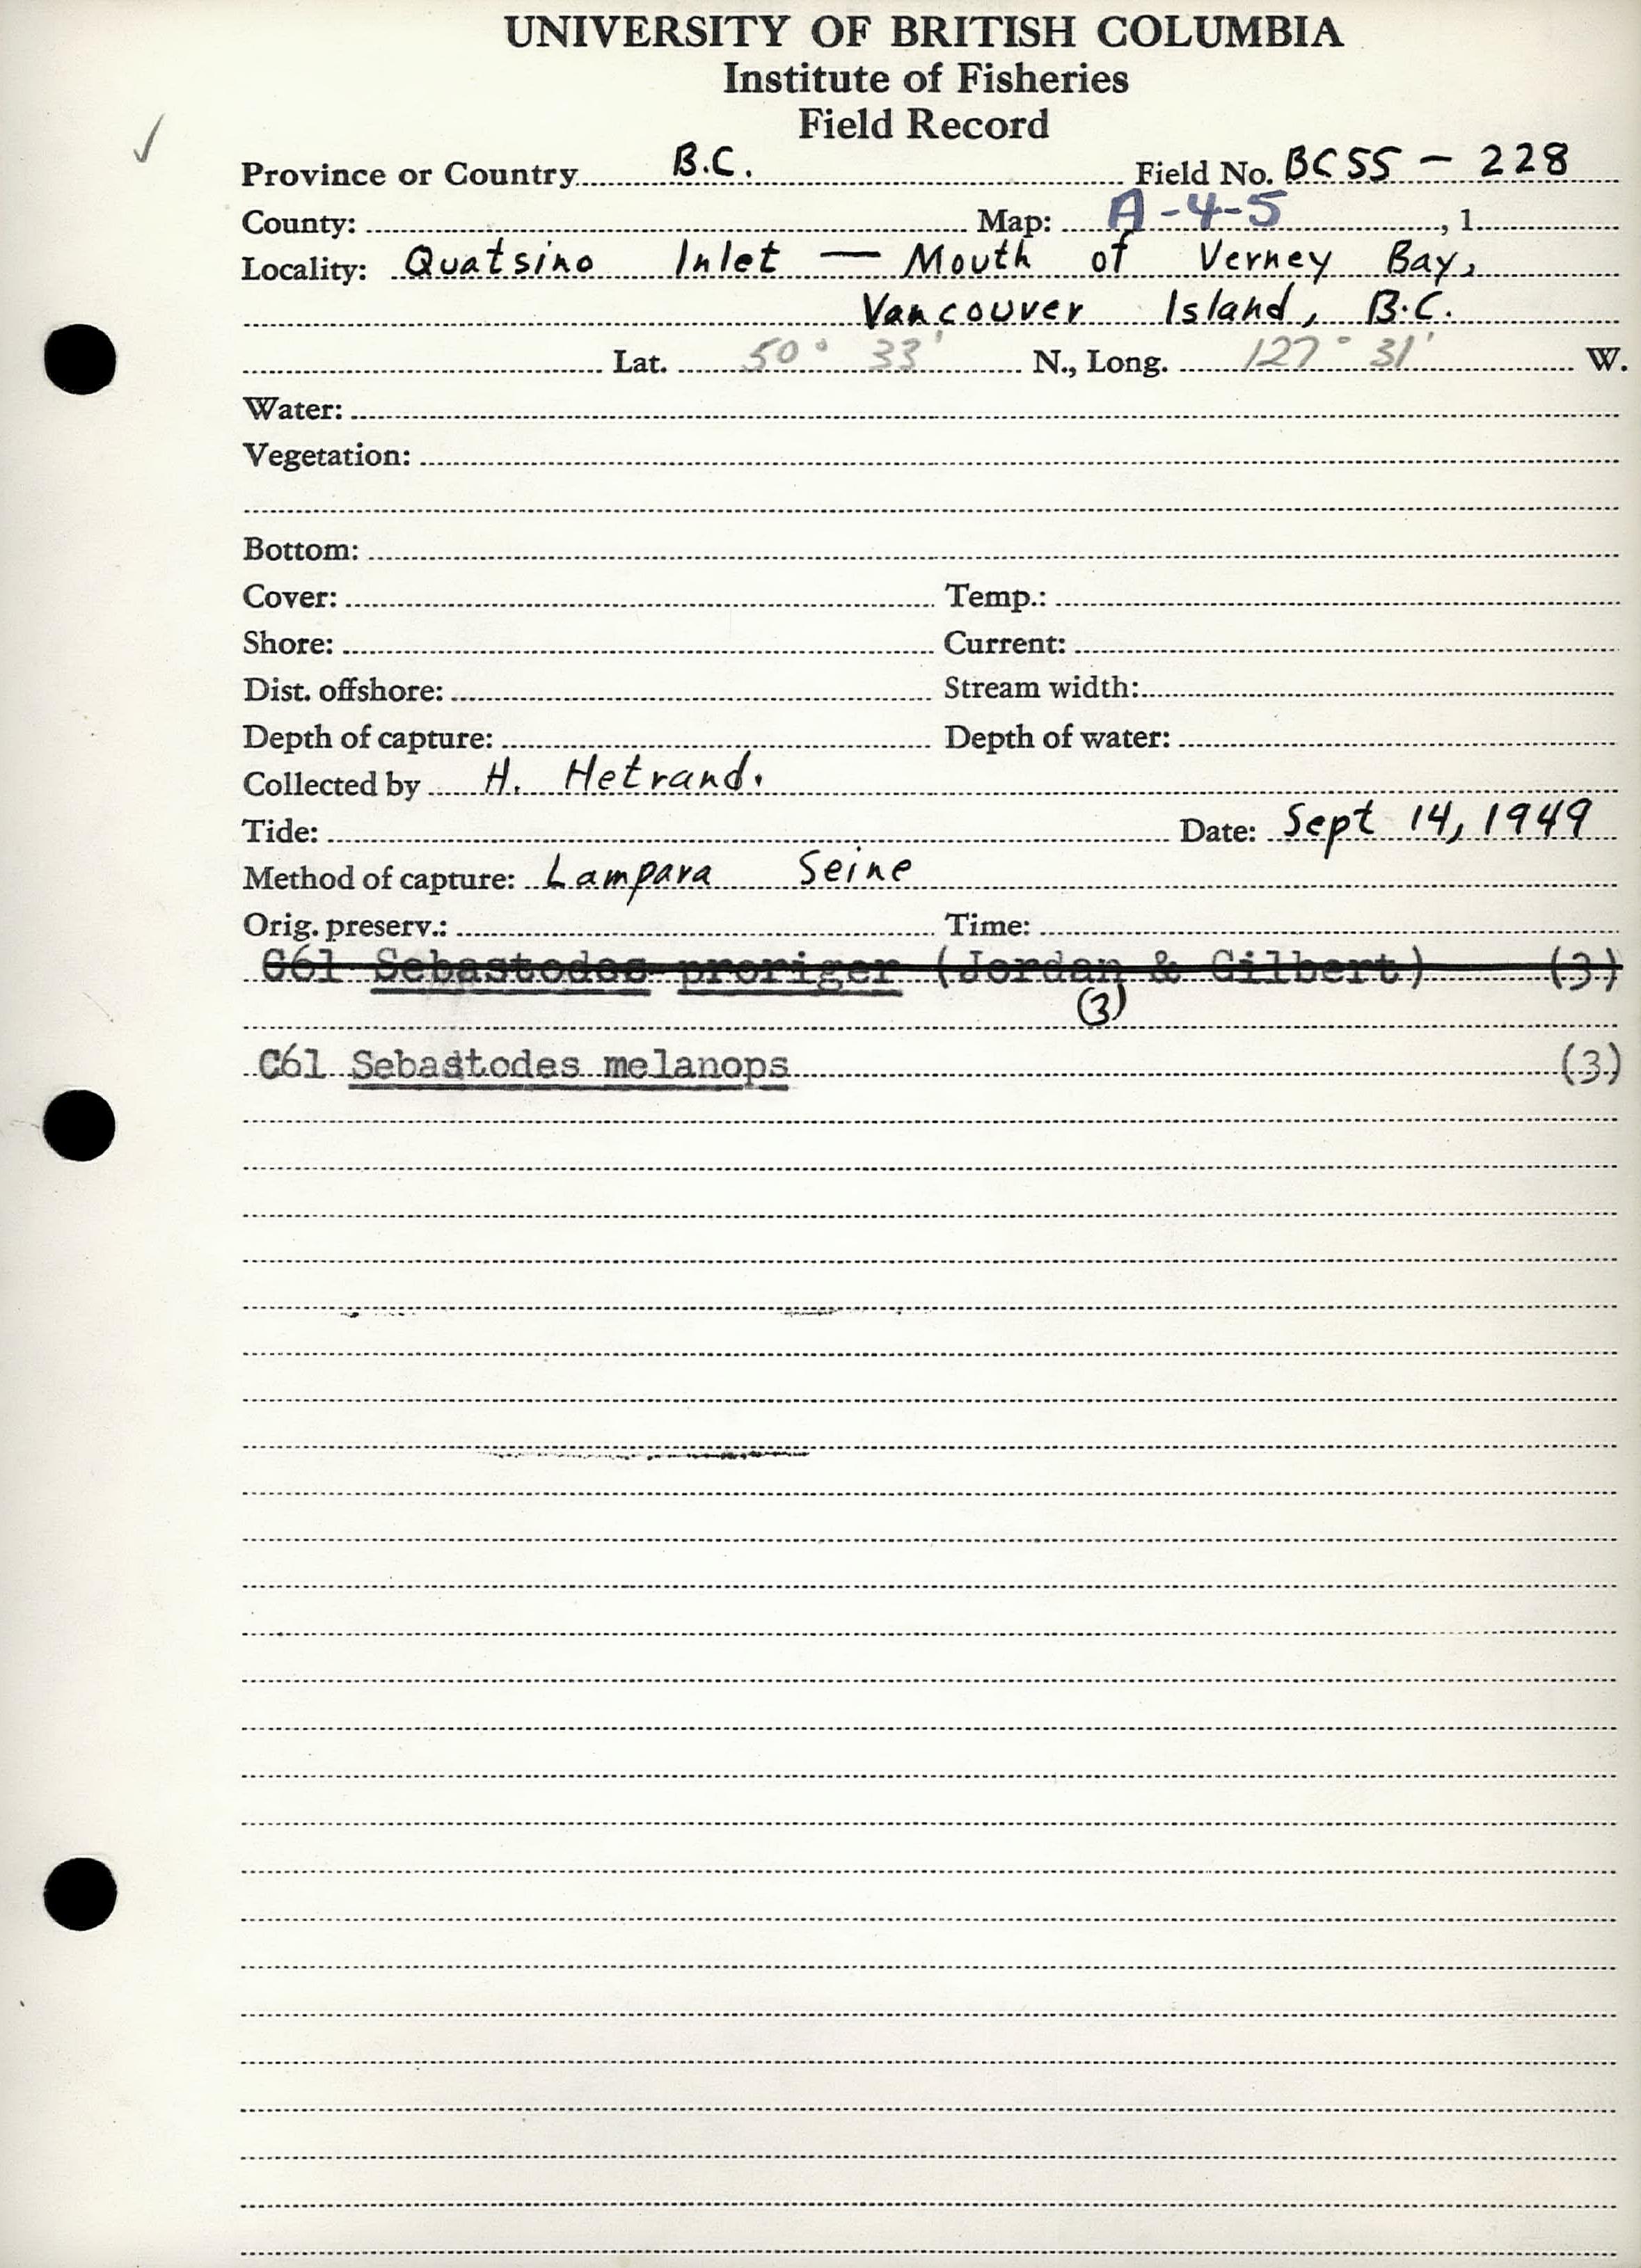 UNIVERSITY OF BRITISH COLUMBIA
Institute of Fisheries
Field Record
✓
Province or Country B.C. Field No. BC55 — 228
County: Map: A-4-5, 1
Locality: Quatsino Inlet — Mouth of Verney Bay,
Vancouver Island, B.C.
Lat. 50° 33' N., Long. 127° 31' W.
Water:
Vegetation:
Bottom:
Cover: Temp.:
Shore: Current:
Dist. offshore: Stream width:
Depth of capture: Depth of water:
Collected by H. Hetrand.
Tide: Date: Sept 14, 1949
Method of capture: Lampara Seine
Orig. preserv.: Time:
C61 Sebastodes proriger (Jordan & Gilbert) (3)
(3)
C61 Sebastodes melanops (3)